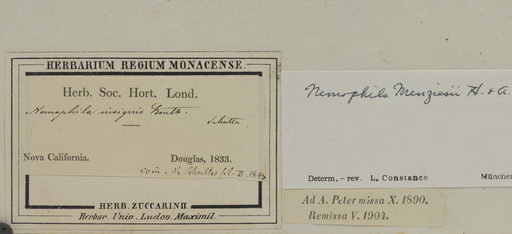 HERBARIUM REGIUM MONACENSE.
Herb. Soc. Hort. Lond.
Nemophila insignis Benth.
Nova California. Douglas, 1833.
com. Schultes fil.
HERB. ZUCCARINII
Herbar. Univ. Ludov. Maximil.
Nemophila Menziesii H. + A.
Determ. – rev. L. Constance Münche
Ad A. Peter missa X. 1890.
Remissa V. 1904.